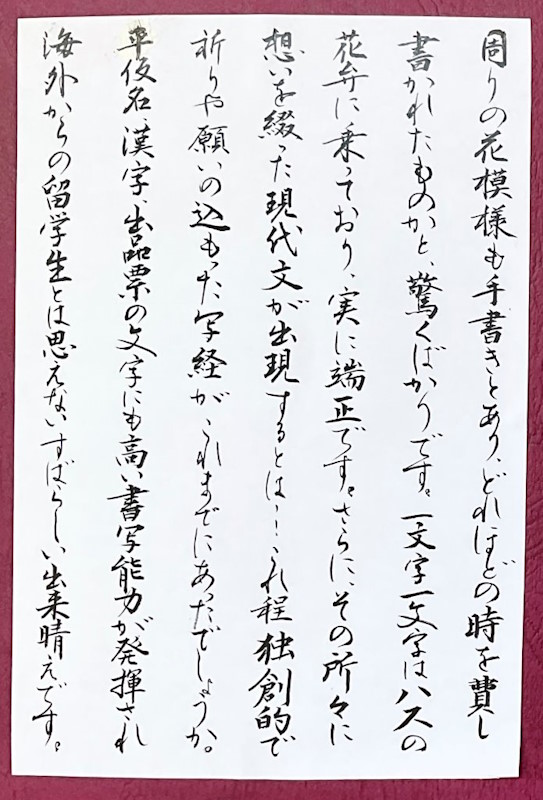 周りの花模様も手書きとあり、どれほどの時を費し
書かれたものかと、驚くばかりです。一文字一文字はハスの
花弁に乗っており、実に端正です。さらに、その所々に
想いを綴った現代文が出現するとは…！これ程独創的で
祈りや願いの込もった写経が、これまでにあったでしょうか。
平仮名、漢字、出品票の文字にも高い書写能力が発揮され
海外からの留学生とは思えないすばらしい出来晴えです。